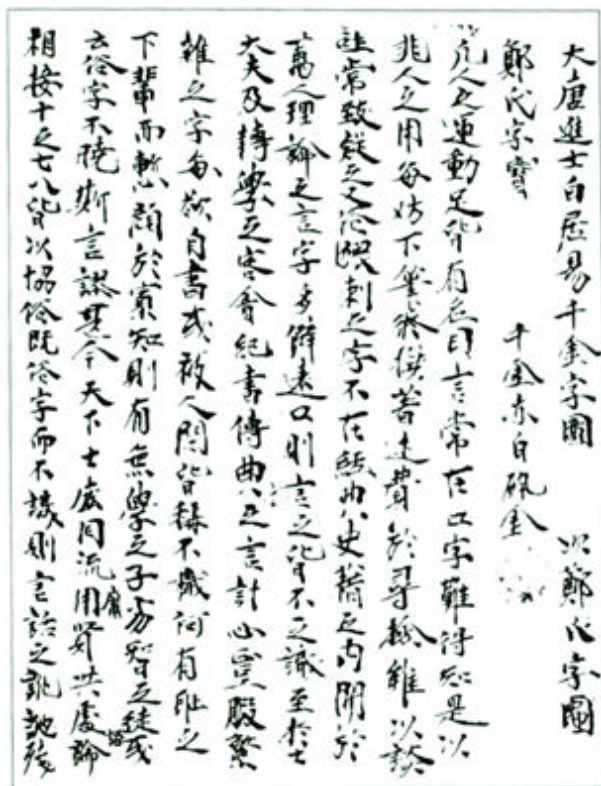 大唐進士白居易千金字圖 次鄭氏字圖
鄭氏字寶 千金亦曰碎金
凡人之運動足皆有名目言常在口字難得知是以
兆人之用每妨下筆修撰著述費於尋撿雖以談
吐常致疑之又俗猥刺之字不在經典史籍之內聞於
萬人理論之言字多僻遠口則言之皆不之識至於士
大夫及轉學之客會紀書傳典之言計心豈暇繁
雜之字每欲自書或被人問皆稱不識何有耻之
下輩而慙顏於寡知則有無學之子劣智之徒或
云俗字不曉斯言謬甚今天下士庶同流庸賢共處語論
相接十之七八皆以協俗既俗字而不識則言話之訛訛殘